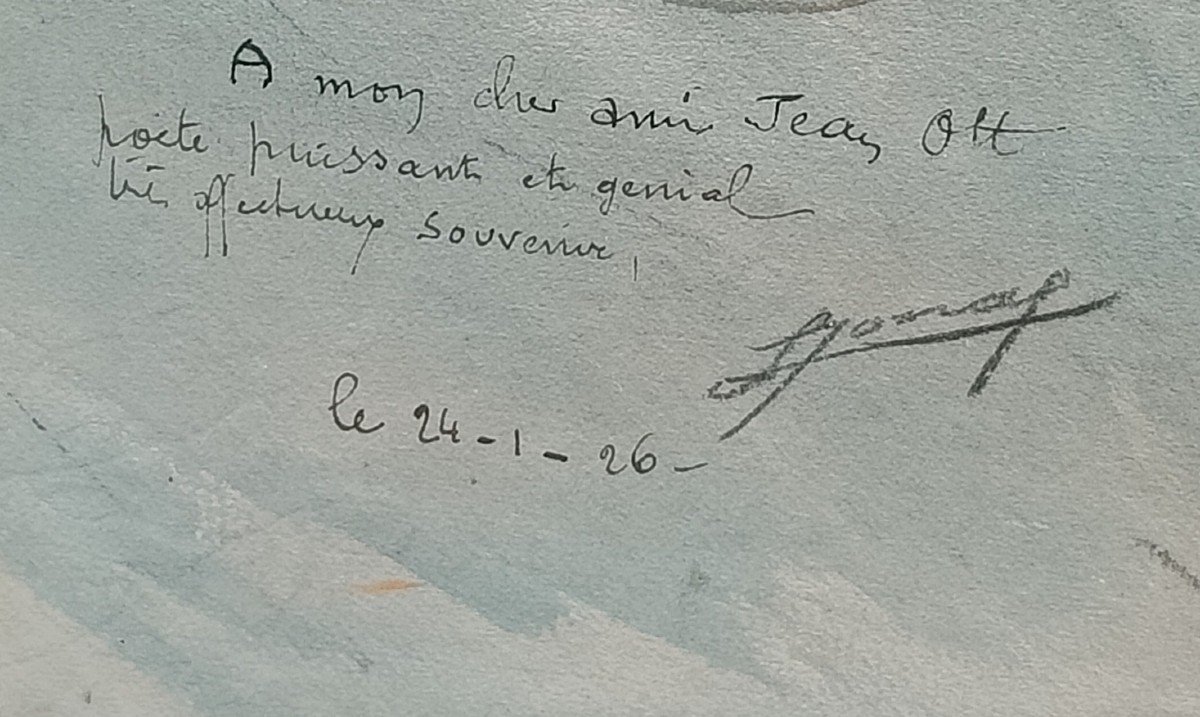 A mon cher ami Jean Ott
poète puissant et genial
très affectueux souvenir,
le 24-1-26-